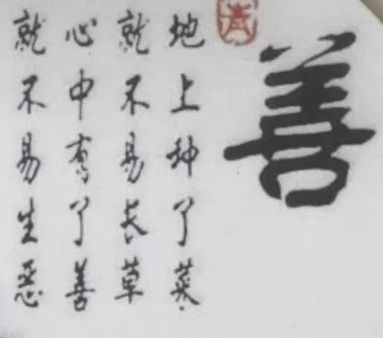 善
地上种了菜
就不易长草
心中有了善
就不易生恶